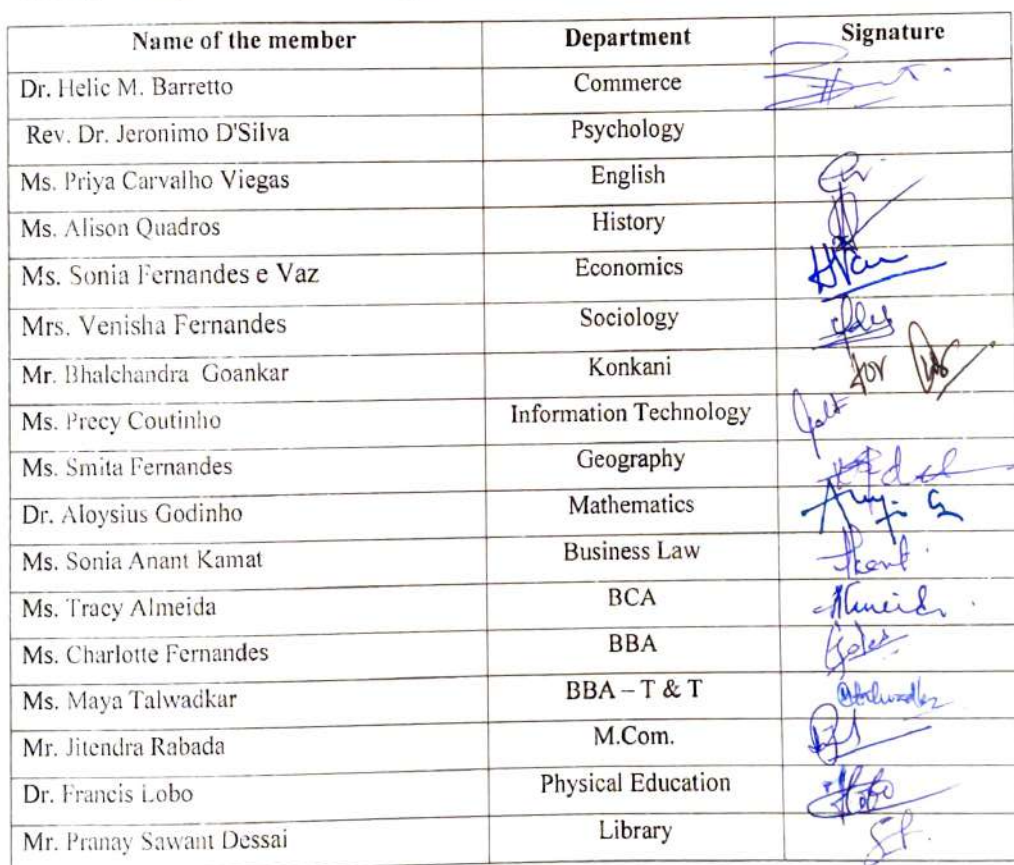 Name of the member Department Signature
Dr. Helic M. Barretto Commerce
Rev. Dr. Jeronimo D'Silva Psychology
Ms. Priya Carvalho Viegas English
Ms. Alison Quadros History
Ms. Sonia Fernandes e Vaz Economics
Mrs. Venisha Fernandes Sociology
Mr. Bhalchandra Goankar Konkani for
Ms. Precy Coutinho Information Technology
Ms. Smita Fernandes Geography
Dr. Aloysius Godinho Mathematics
Ms. Sonia Anant Kamat Business Law
Ms. Tracy Almeida BCA Almeida
Ms. Charlotte Fernandes BBA
Ms. Maya Talwadkar BBA – T & T
Mr. Jitendra Rabada M.Com.
Dr. Francis Lobo Physical Education
Mr. Pranay Sawant Dessai Library